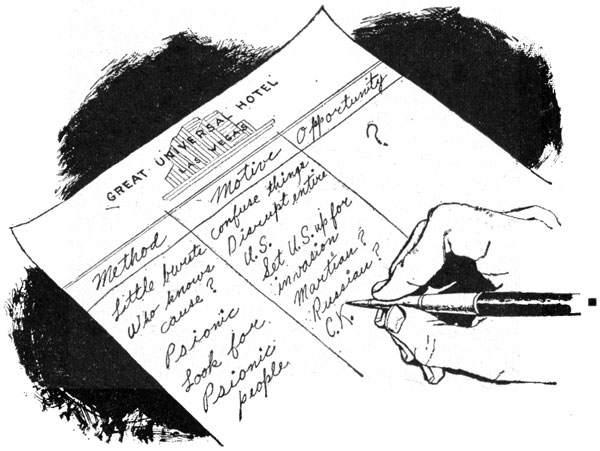 GREAT UNIVERSAL HOTEL
LAS VEGAS
Method
Motive
Opportunity
Little bursts
Who knows
cause?
Psionic
Look for
Psionic
people
confuse things
Disrupt entire
U.S.
Set U.S. up for
invasion
Martian?
Russian?
C.K.
?